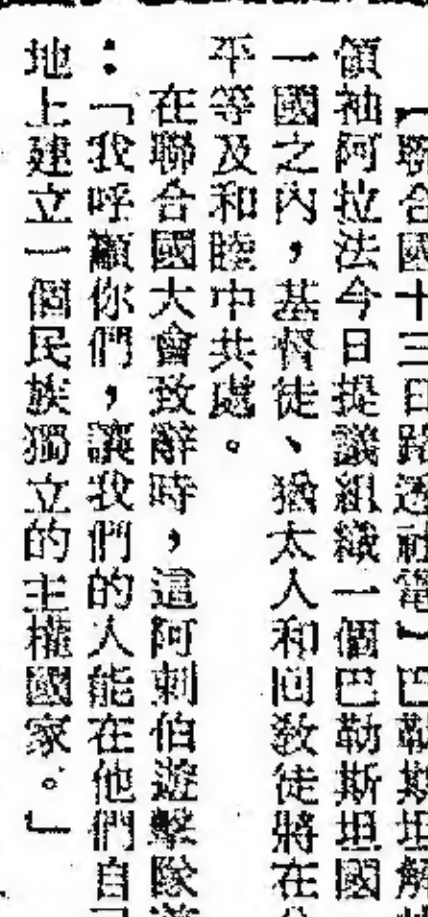 【聯合國十三日路透社電】巴勒斯坦解
領袖阿拉法今日提議組織一個巴勒斯坦國
一國之內，基督徒、猶太人和回教徒將在
平等及和睦中共處。
在聯合國大會致辭時，這阿剌伯遊擊隊
：「我呼籲你們，讓我們的人能在他們自
地上建立一個民族獨立的主權國家。」